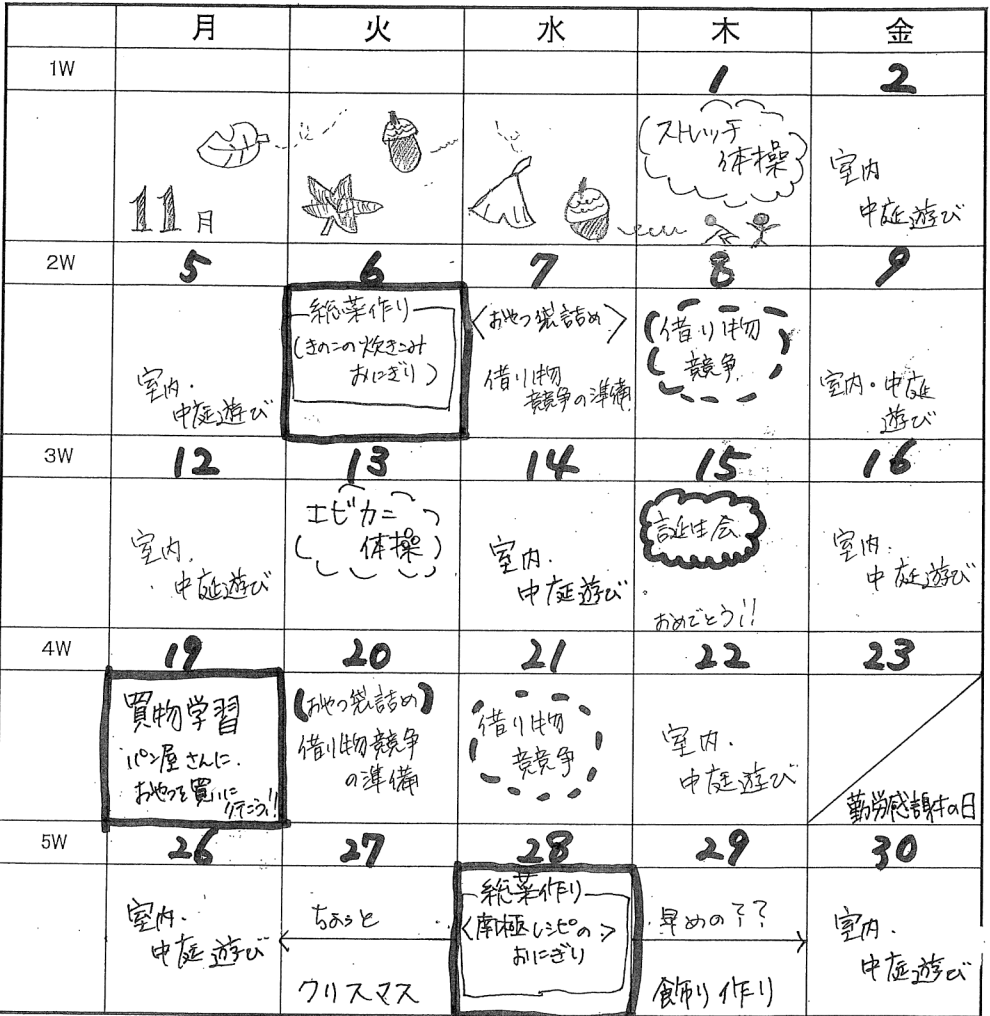 月 火 水 木 金
1W 1 2
11月
ストレッチ
体操
室内
中庭遊び
2W 5 6 7 8 9
室内・
中庭遊び
総菜作り
(きのこの炊きこみ
おにぎり)
〈おやつ袋詰め〉
借り物
競争の準備
借り物
競争
室内・中庭
遊び
3W 12 13 14 15 16
室内.
中庭遊び
エビカニ
体操
室内.
中庭遊び
誕生会
おめでとう!!
室内.
中庭遊び
4W 19 20 21 22 23
買物学習
パン屋さんに.
おやつを買いに
行こう!!
(おやつ袋詰め)
借り物競争
の準備
借り物
競争
室内.
中庭遊び
勤労感謝の日
5W 26 27 28 29 30
室内.
中庭遊び
ちょっと
クリスマス
総菜作り
〈南極レシピの〉
おにぎり
早めの??
飾り作り
室内.
中庭遊び